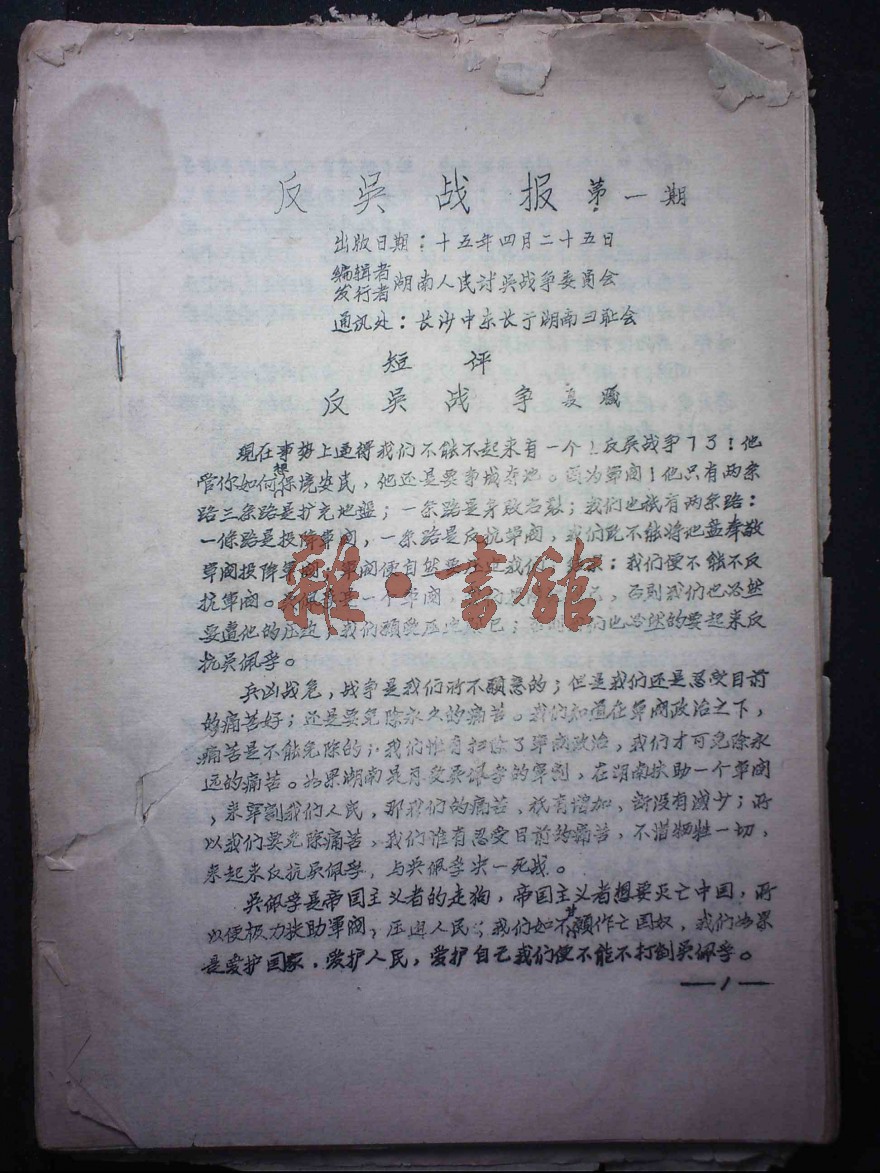 反吴战报第一期
出版日期：十五年四月二十五日
编辑者
发行者 湖南人民讨吴战争委员会
通讯处：长沙中东长于湖南日耻会
短评
反吴战争 夏
现在事势上逼得我们不能不起来有一个！反吴战争了！他
管你如何想保境安民，他还是要争城夺地。因为军阀！他只有两条
路 条路是扩充地盘；一条路是身败名裂；我们也祇有两条路：
一條路是投降军阀，一条路是反抗军阀，我们既不能将地盘奉敬
军阀投降军阀，军阀便自然要压迫我们，结果：我们便不能不反
抗军阀。吴佩孚是一个军阀，否则我们也必然
要遭他的压迫，我们愿受压迫 已；我们也必然的要起来反
抗吴佩孚。
兵凶战危，战争是我们所不愿意的；但是我们还是忍受目前
的痛苦好；还是要免除永久的痛苦。我们知道在军阀政治之下，
痛苦是不能免除的；我们惟有扫除了军阀政治，我们才可免除永
远的痛苦。如果湖南是 受吴佩孚的宰割，在湖南扶助一个军阀
，来宰割我们人民，那我们的痛苦、祇有增加，断没有减少；所
以我们要免除痛苦，我们惟有忍受目前的痛苦，不惜牺牲一切，
来起来反抗吴佩孚，与吴佩孚决一死战。
吴佩孚是帝国主义者的走狗，帝国主义者想要灭亡中国，所
以便极力扶助军阀，压迫人民；我们如不甘願作亡国奴，我们如果
是爱护国家，爱护人民，爱护自己我们便不能不打倒吴佩孚。
—1—
雜·書館